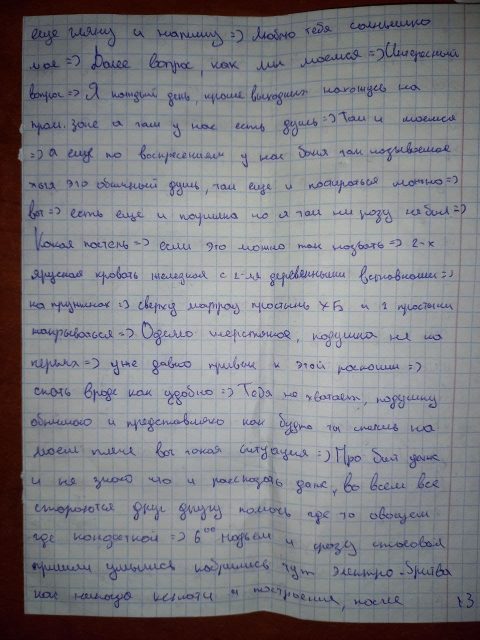 еще гляну и напишу =) Люблю тебя солнышко
мое =) Далее вопрос, как мы моемся =) Интересный
вопрос =) Я каждый день, кроме выходных нахожусь на
пром. зоне а там у нас есть душ =) Там и моемся
=) а еще по воскресениям у нас баня так называемая
хотя это обычный душ, там еще и постираться можно =)
вот =) есть еще и но я там ни разу не был =)
Какая постель =) если это можно так назвать =) 2-х
ярусная кровать железная с 2-мя деревянными вставками =)
на пружинах =) сверху матрац простынь ХБ и 1 простынь
накрываться =) Одеяло шерстяное, подушка не из
перьев =) уже давно привык к этой роскоши =)
спать вроде как удобно =) Тебя не хватает, подушку
обнимаю и представляю как будто ты спишь на
моем плече вот такая ситуация =) Про быт даже
и не знаю что и рассказать даже, во всем все
стараются друг другу помочь где то овощем
где конфеткой =) 6⁰⁰ подъем и сразу столовая
пришли умылись побрились тут электро-бритва
как никогда кстати и построение, после 13